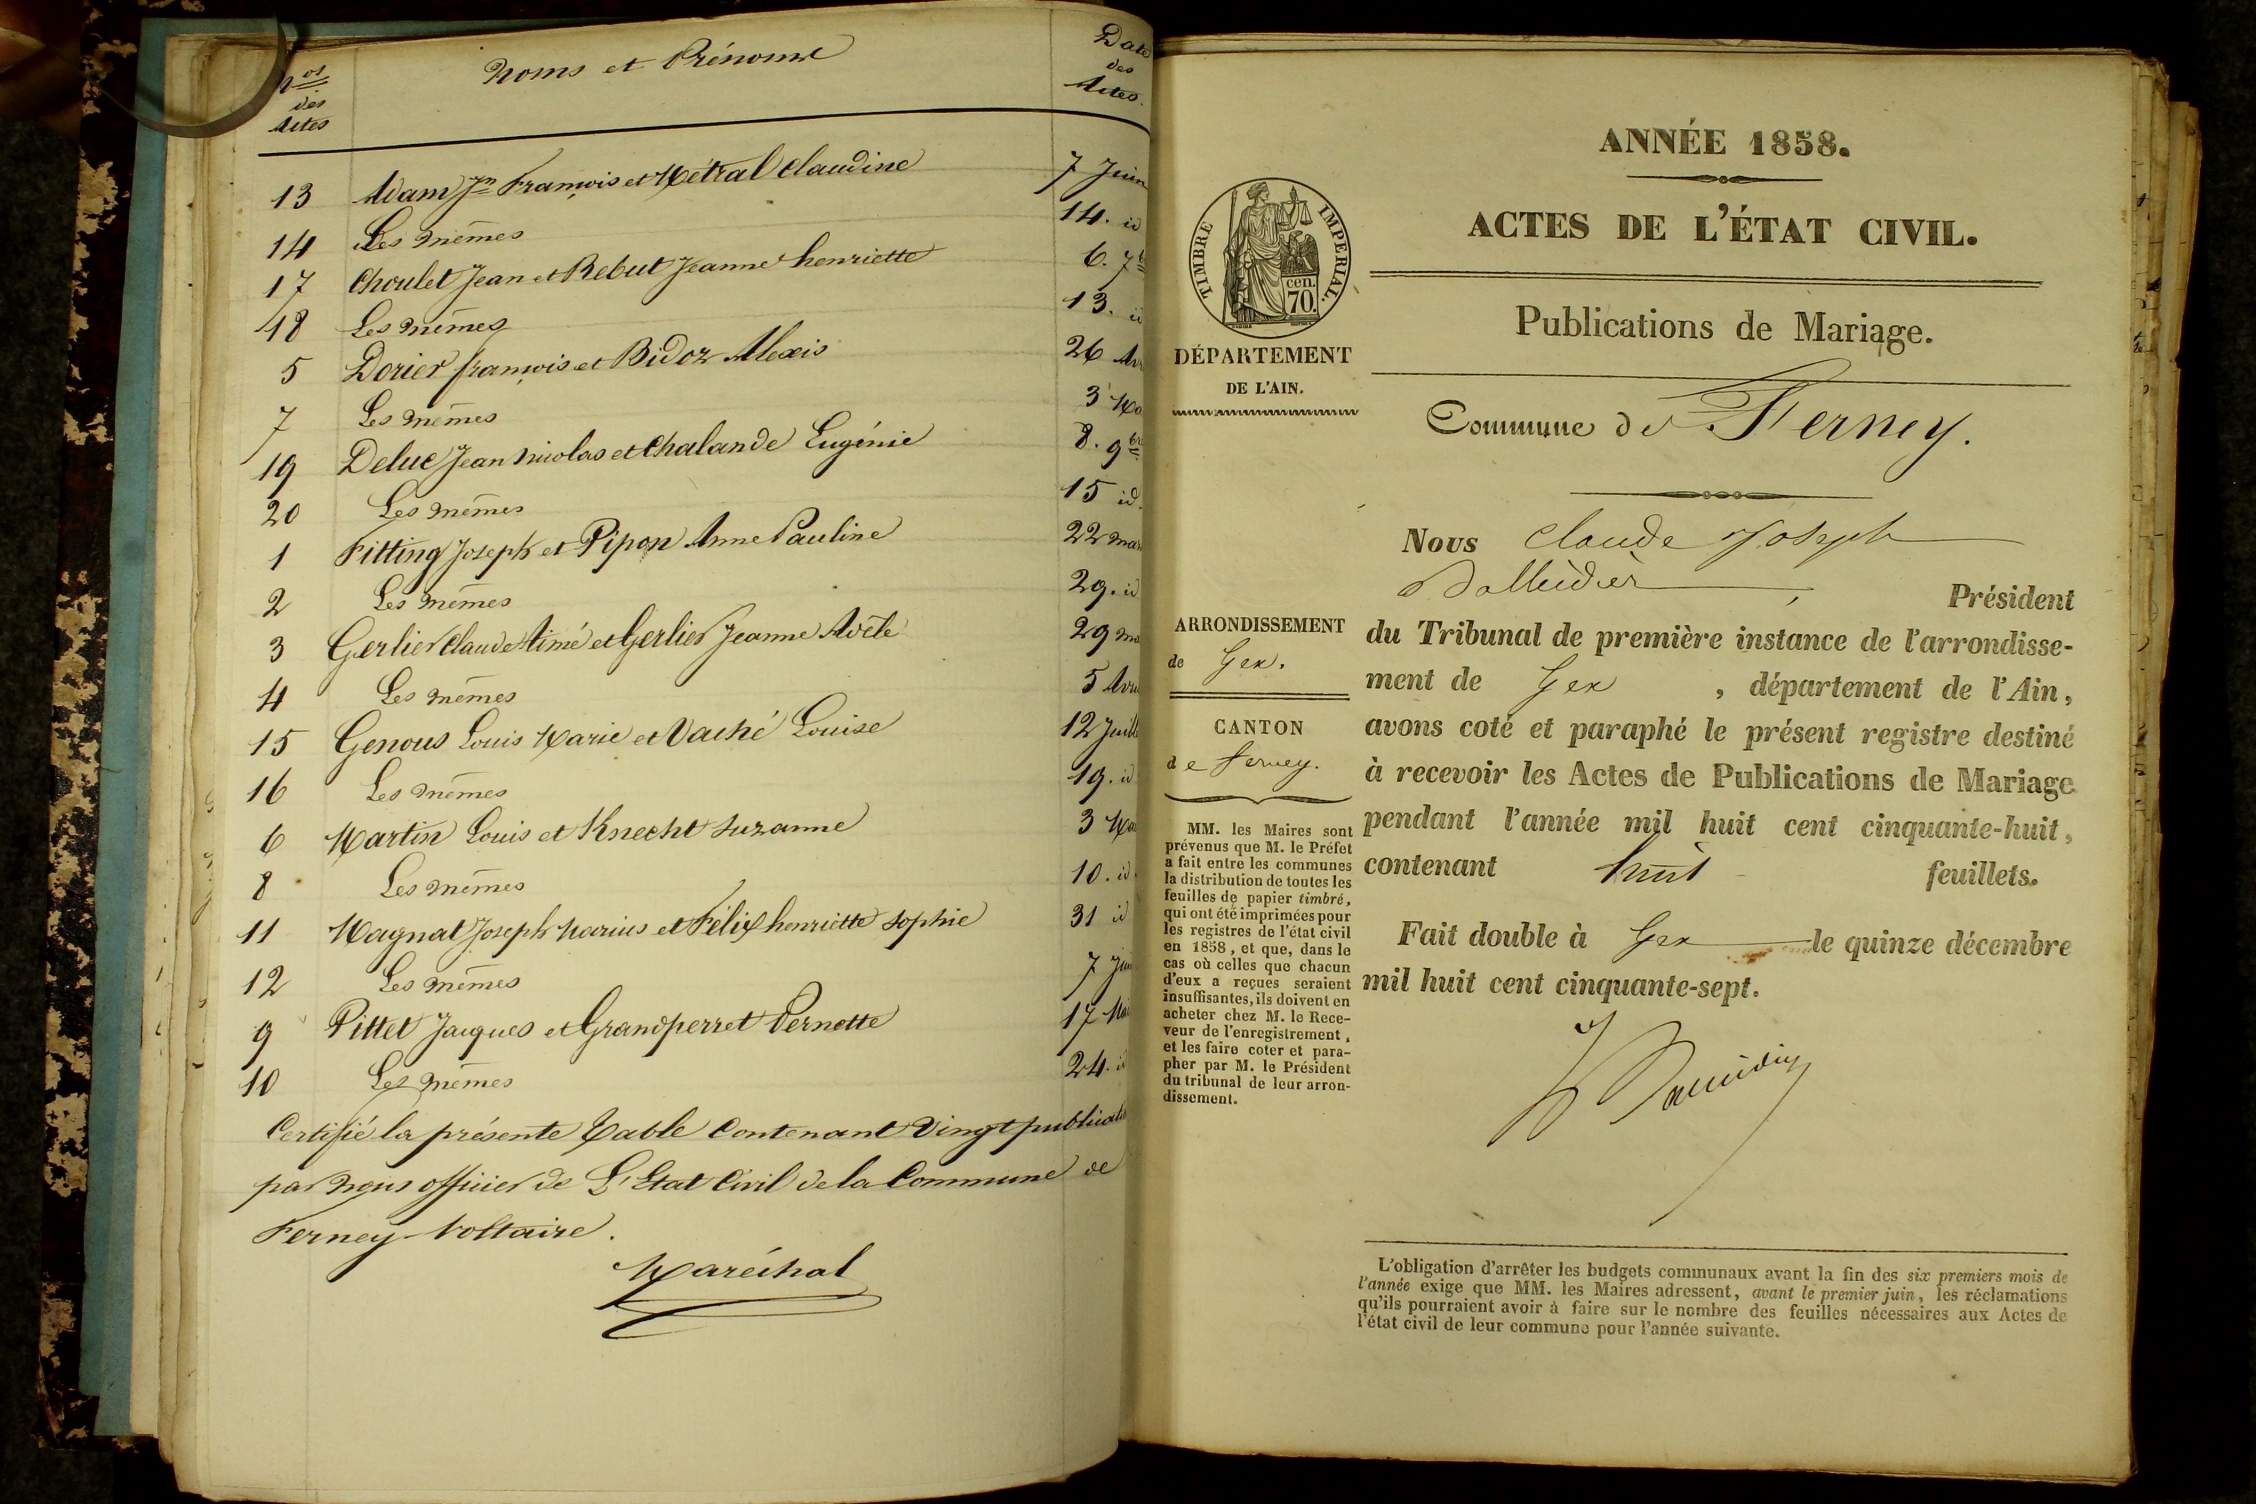 Nos
des
Actes
Noms et Prénoms
Date
des
Actes.
13 Adam Jn François et Métral Claudine 7 Juin
14 Les mêmes 14. id
17 Choulet Jean et Rebut Jeanne henriette 6. 7b
18 Les mêmes 13. id
5 Dorier françois et Bidoz Alexis 26 Av
7 Les mêmes 3 Ma
19 Deluc Jean Nicolas et Chalande Eugénie 8. 9bre
20 Les mêmes 15 id.
1 Fitting Joseph et Pipon Anne Pauline 22 mar
2 Les mêmes 29. id
3 Gerlier Claude Aimé et Gerlier Jeanne Adèle 29 ma
4 Les mêmes 5 Avri
15 Genous Louis Marie et Vaché Louise 12 Juill
16 Les mêmes 19. id
6 Martin Louis et Knecht Suzanne 3 Mai
8 Les mêmes 10. id
11 Magnat Joseph Marius et Félix henriette Sophie 31 id
12 Les mêmes 7 Jui
9 Pittet Jacques et Grandperret Pernette 17 Mai
10 Les mêmes 24. id
Certifié la présente Table Contenant Vingt publicat
par nous officier de L'Etat Civil de la Commune de
Ferney-Voltaire.
Maréchal
ANNÉE 1858.
ACTES DE L'ÉTAT CIVIL.
TIMBRE IMPERIAL.
cen.
70.
Publications de Mariage.
DÉPARTEMENT
DE L'AIN.
Commune de Ferney.
Nous Claude Joseph
, Président
ARRONDISSEMENT
de Gex.
du Tribunal de première instance de l'arrondisse-
ment de Gex , département de l'Ain,
CANTON
de Ferney.
avons coté et paraphé le présent registre destiné
à recevoir les Actes de Publications de Mariage
pendant l'année mil huit cent cinquante-huit,
contenant huit feuillets.
Fait double à Gex le quinze décembre
mil huit cent cinquante-sept.
MM. les Maires sont
prévenus que M. le Préfet
a fait entre les communes
la distribution de toutes les
feuilles de papier timbré,
qui ont été imprimées pour
les registres de l'état civil
en 1858, et que, dans le
cas où celles que chacun
d'eux a reçues seraient
insuffisantes, ils doivent en
acheter chez M. le Rece-
veur de l'enregistrement,
et les faire coter et para-
pher par M. le Président
du tribunal de leur arron-
dissement.
L'obligation d'arrêter les budgets communaux avant la fin des six premiers mois de
l'année exige que MM. les Maires adressent, avant le premier juin, les réclamations
qu'ils pourraient avoir à faire sur le nombre des feuilles nécessaires aux Actes de
l'état civil de leur commune pour l'année suivante.